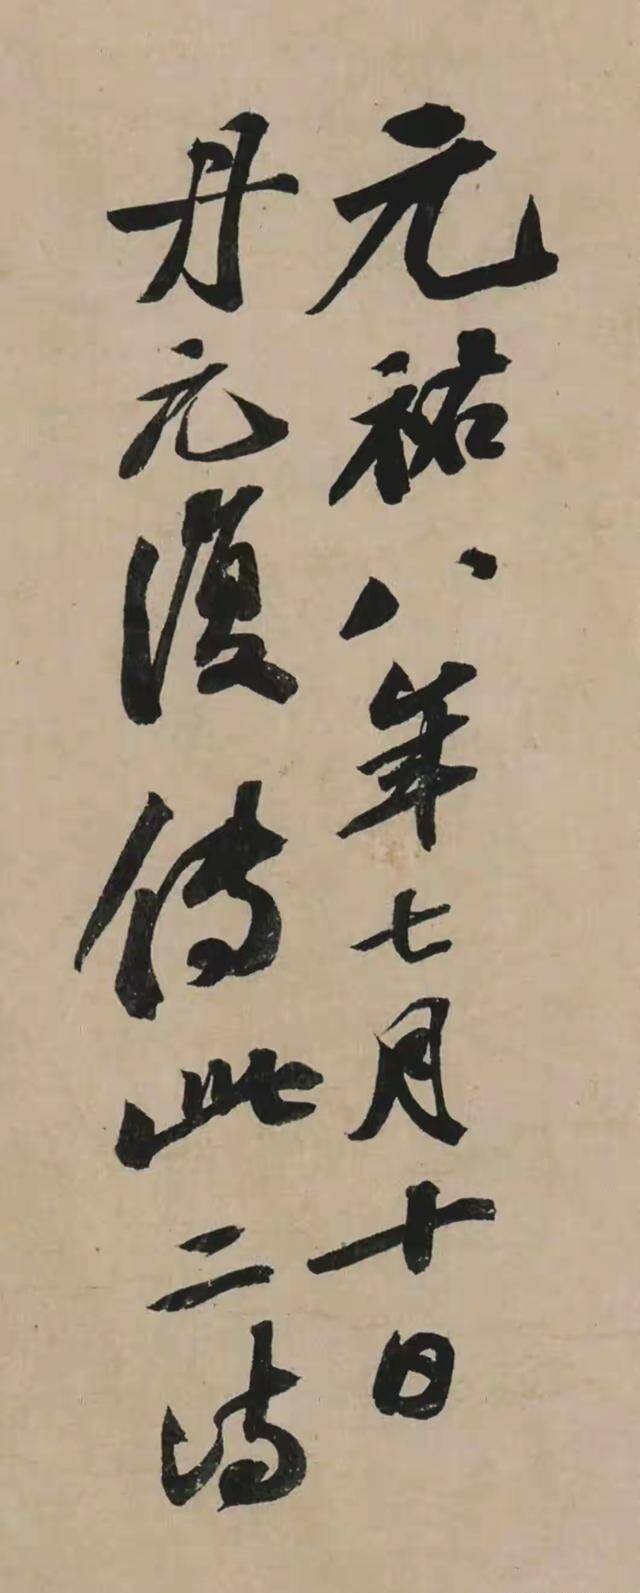 元祐八年七月十日
丹元復傳此二詩